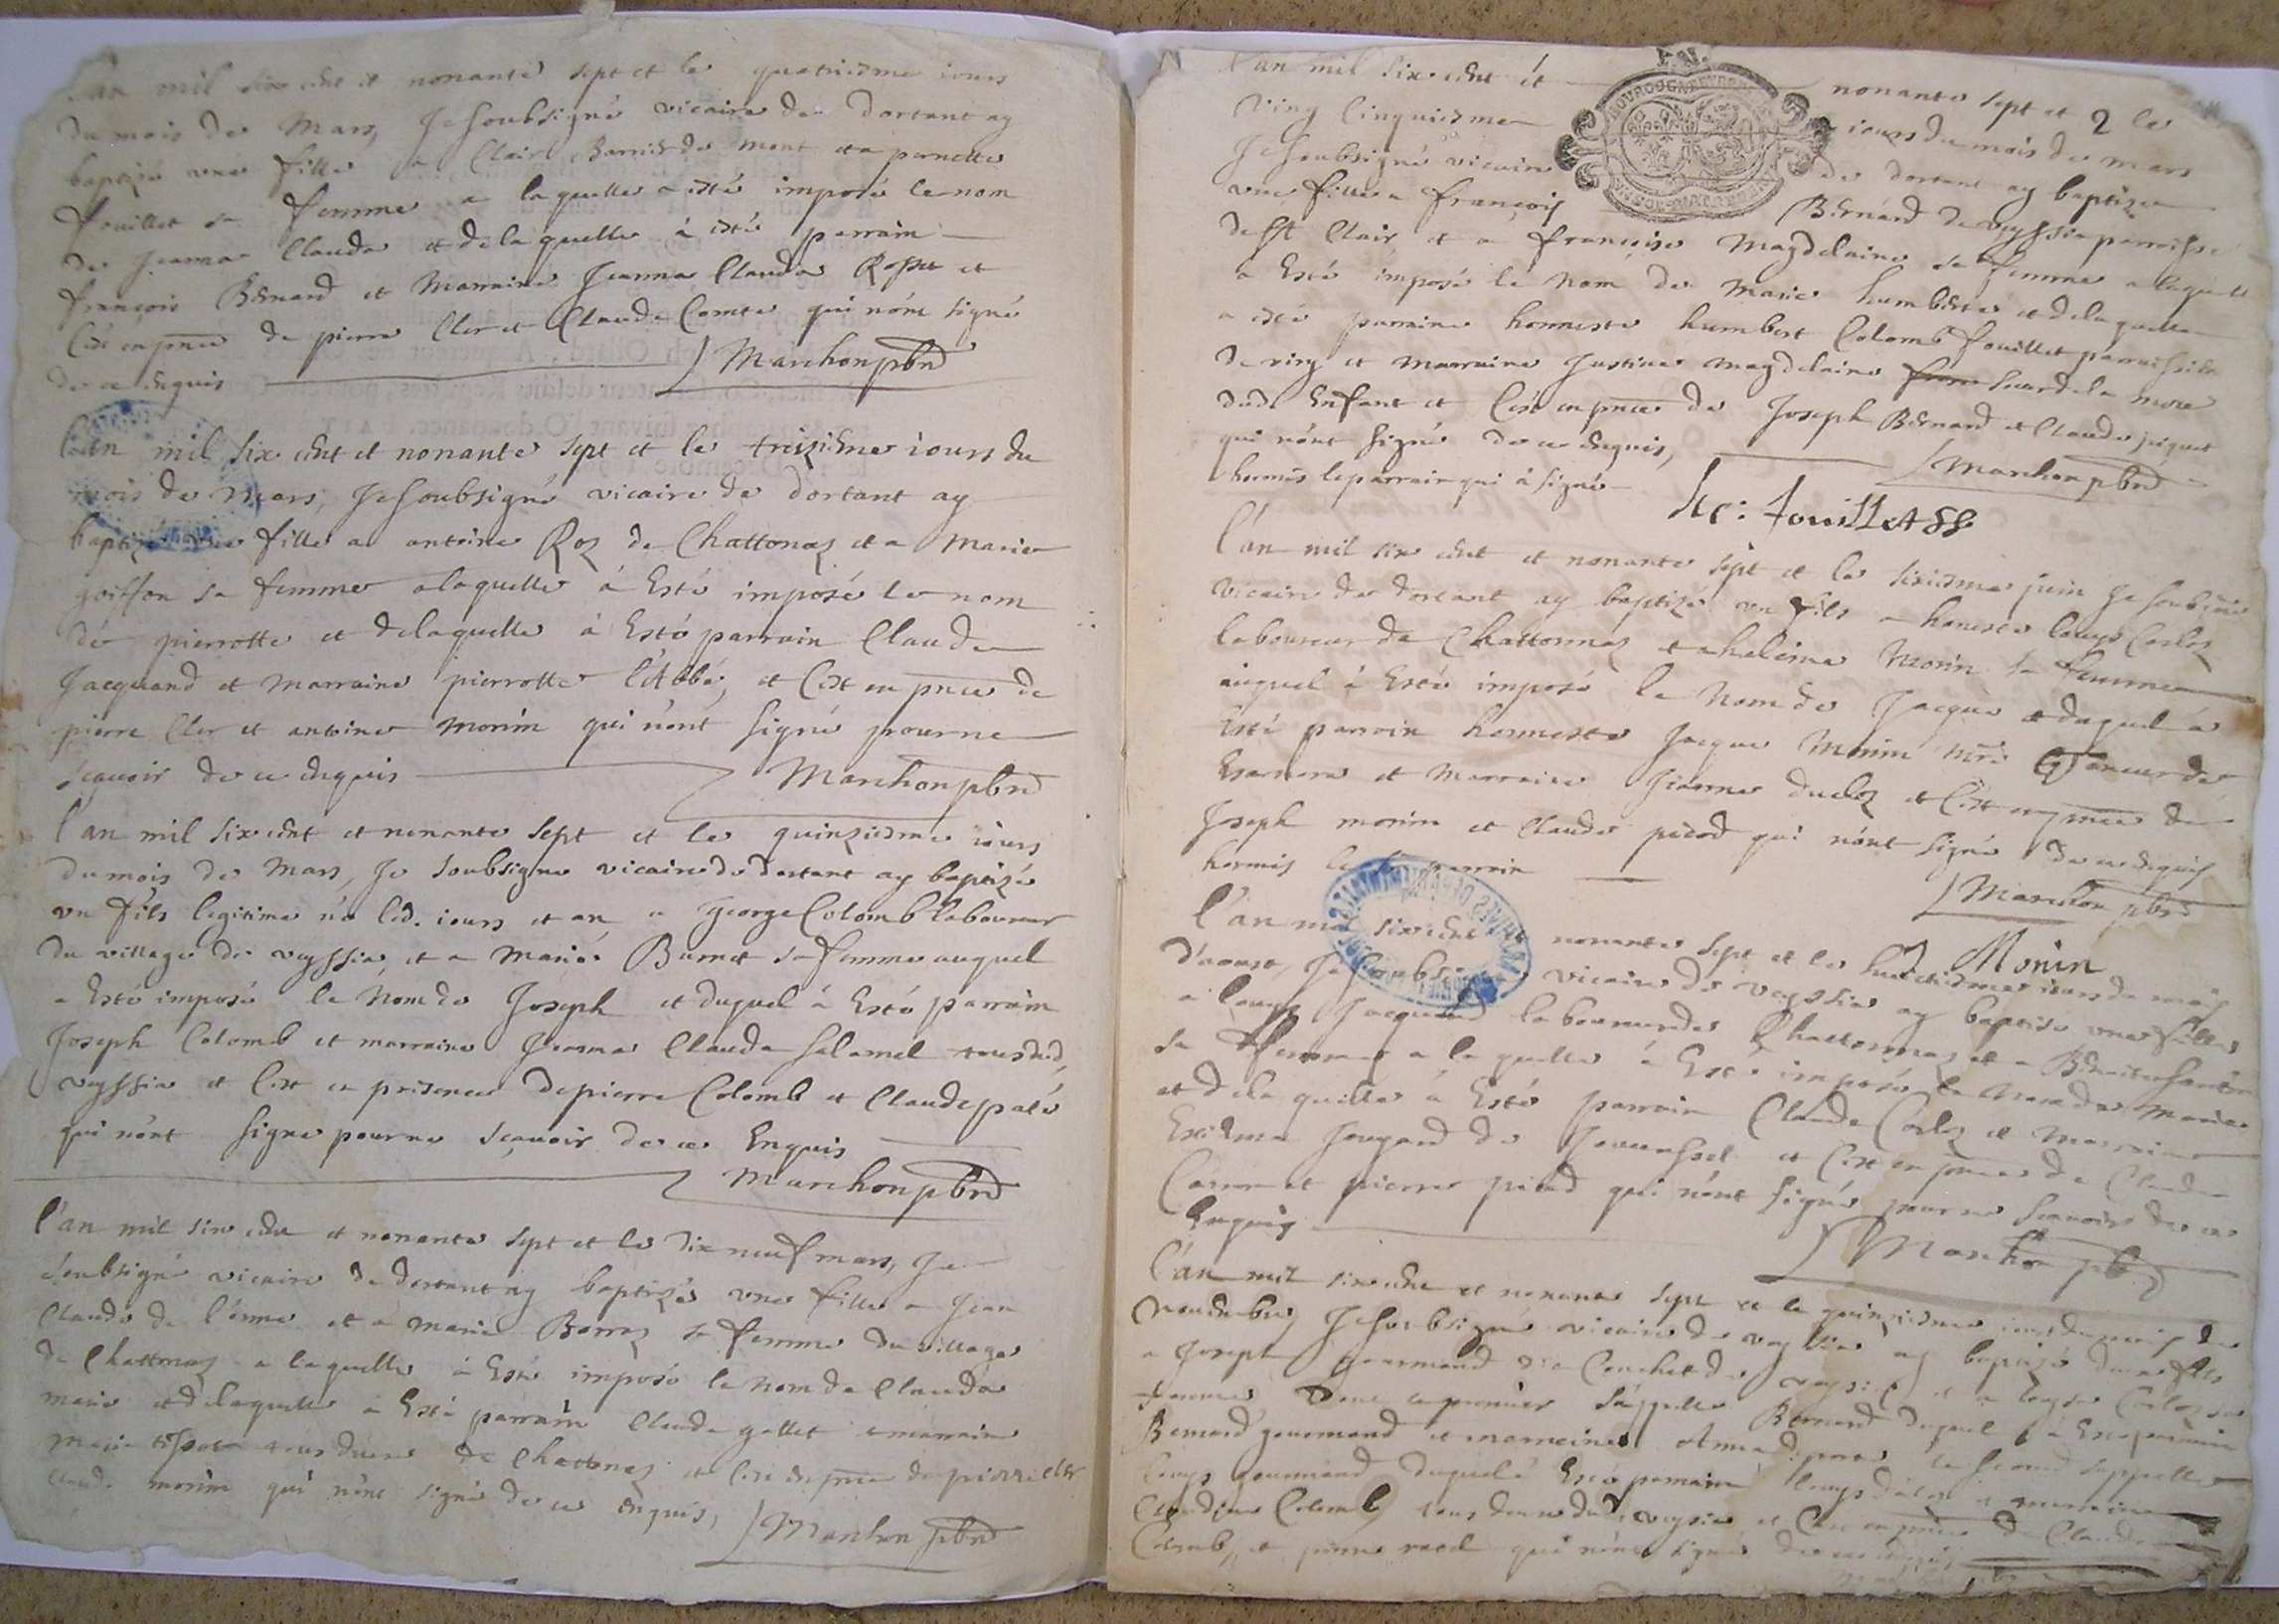 L'an mil six cent et nonante sept et le quatriesme iours
du mois de Mars, Je soubsigné vicaire de dortant ay
baptizé une fille a Clair Barrier de mont et a pernette
fouillet sa femme a laquelle a esté imposé le nom
de Jeanna Clauda et de laquelle à esté parrain
françois Bernard et Marraine Jeanna Claudia Rosset et
C'est en pnce de pierre Cler et Claude Comte qui n'ont signé
de ce enquis Marchon pbre
L'an mil six cent et nonante sept et le treizieme iours du
mois de Mars, Je soubsigné vicaire de dortant ay
baptizé une fille a antoine Roz de Chattonaz et a Marie
goiffon sa femme a laquelle à Esté imposé le nom
de pierrotte et de laquelle à Esté parrain Claude
Jacquand et marraine pierrotte l'Abbé, et C'est en pnce de
pierre Cler et antoine Monin qui n'ont signé pour ne
sçauoir de ce enquis Marchon pbre
L'an mil six cent et nonante sept et le quinziesme iours
du mois de Mars, Je soubsigne vicaire de dortant ay baptizé
un fils legitime né led. iours et an a George Colomb laboureur
du village de veyssia, et a Marie Burnet sa femme auquel
a Esté imposé le Nom de Joseph et duquel à Esté parrain
Joseph Colomb et marraine Jeanna Clauda Salamel tous dud.
veyssia et C'est en presence de pierre Colomb et Claude palé
qui n'ont signe pour ne sçauoir de ce Enquis
Marchon pbre
L'an mil six cent et nonante sept et le dix neuf mars, Je
soubsigné vicaire de dortant ay baptizé une fille a Jean
Claude de l'érme et a Marie Borroz sa femme du village
de Chattonaz a laquelle à Esté imposé le nom de Clauda
marie et de laquelle a Esté parrain Claude gallet et marraine
Marie tous deux de Chattonaz et C'est en pnce de pierre Cler
Claude monin qui n'ont signé de ce enquis, Marchon pbre
L'an mil six cent et nonante sept et 2 le
ving cinquiesme iours du mois de mars
Je soubsigné vicaire de dortant ay baptize
une fille a françois Bernard de veyssia parroisse
de St Clair et a françoise Magdelaine sa femme a laquelle
a Esté imposé le nom de Marie humberte et de laquelle
a esté parraine honneste humbert Colomb fouillet parroissien
de viry et marraine Justine magdelaine soeur de la mere
dud. Enfant et C'est en pnce de Joseph Bernard et Claude jaquet
qui n'ont signé de ce enquis,
hormis le parrain qui à signé Marchon pbre
hc: fouillet
L'an mil six cent et nonante sept et le sixiesme juin Je soubsigné
vicaire de dortant ay baptizé un fils a honneste Louys Carloz
laboureur de Chattonnaz et a heleine Monin sa femme
auquel à Esté imposé le Nom de Jacque et duquel à
Esté parrain honneste Jacque Monin mre de
et Marraine Jeanne ducloz et C'est en pnce de
Joseph monin et Claude picod qui n'ont signé de ce enquis
hormis le parrain Marchon pbre
Monin
L'an mil six cent nonante sept et le huictiesme iours du mois
d'aoust, Je soubsigné vicaire de veyssia ay baptise une fille
a Louys Jacquand laboureur de Chattonnaz et a
sa femme a laquelle à Esté imposé le Nom de Marie
et de laquelle à Esté parrain Claude Carloz et Marraine
Jougard de et C'est en pnce de Claude
Carron et pierre picod qui n'ont signé pour ne sçauoir de ce
Enquis Marchon pb
L'an mil six cent et nonante sept et le quinziesme iours du mois de
novembre Je soubsigné vicaire de veyssia ay baptizé deux fils
a Joseph gourmand de veyssia et a Louyse Carloz sa
femme dont le premier s'appelle Bernard duquel à Esté parrain
Bernard gourmand et marraine le second s'appelle
Louys gourmand duquel à Esté parrain Louys et marraine
Claudine Colomb tous deux dud. veyssia, et C'est en pnce de Claude
Colomb, et pierre qui n'ont signé de ce enquis